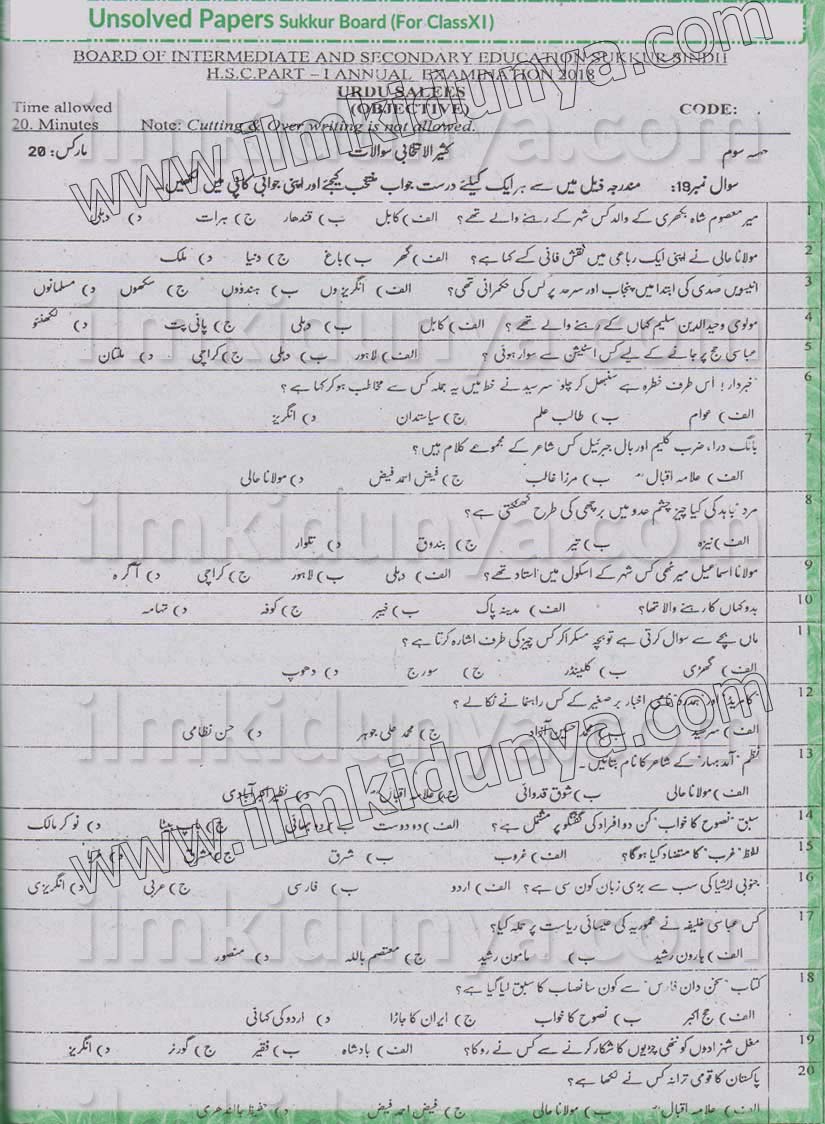 Unsolved Papers Sukkur Board (For ClassXI)
BOARD OF INTERMEDIATE AND SECONDARY EDUCATION SUKKUR SINDH
H.S.C.PART – I ANNUAL EXAMINATION 2018
URDU SALEES
Time allowed (OBJECTIVE) CODE:
20. Minutes Note: Cutting & Over writing is not allowed.
حصہ سوم کثیر الانتخابی سوالات مارکس: 20
سوال نمبر19: مندرجہ ذیل میں سے ہر ایک کیلئے درست جواب منتخب کیجئے اور اپنی جوابی کاپی میں لکھیں۔
1 میر معصوم شاہ بکھری کے والد کس شہر کے رہنے والے تھے؟ الف) کابل ب) قندھار ج) ہرات د) دہلی
2 مولانا حالی نے اپنی ایک رباعی میں نقش فانی کسے کہا ہے؟ الف) گھر ب) باغ ج) دنیا د) ملک
3 انیسویں صدی کی ابتدا میں پنجاب اور سرحد پر کس کی حکمرانی تھی؟ الف) انگریزوں ب) ہندوؤں ج) سکھوں د) مسلمانوں
4 مولوی وحید الدین سلیم کہاں کے رہنے والے تھے؟ الف) کابل ب) دہلی ج) پانی پت د) لکھنئو
5 عباسی حج پر جانے کے لیے کس اسٹیشن سے سوار ہوئی؟ الف) لاہور ب) دہلی ج) کراچی د) ملتان
6 "خبردار! اُس طرف خطرہ ہے سنبھل کر چلو" سرسید نے خط میں یہ جملہ کس سے مخاطب ہو کر کہا ہے؟
الف) عوام ب) طالب علم ج) سیاستدان د) انگریز
7 بانگ درا، ضرب کلیم اور بال جبرئیل کس شاعر کے مجموعے کلام ہیں؟
الف) علامہ اقبال ب) مرزا غالب ج) فیض احمد فیض د) مولانا حالی
8 مرد مجاہد کی کیا چیز چشم عدو میں برچھی کی طرح کھٹکتی ہے؟
الف) نیزہ ب) تیر ج) بندوق د) تلوار
9 مولانا اسماعیل میرٹھی کس شہر کے اسکول میں استاد تھے؟ الف) دہلی ب) لاہور ج) کراچی د) آگرہ
10 بدو کہاں کا رہنے والا تھا؟ الف) مدینہ پاک ب) خیبر ج) کوفہ د) تہامہ
11 ماں بچے سے سوال کرتی ہے تو بچہ مسکرا کر کس چیز کی طرف اشارہ کرتا ہے؟
الف) گھڑی ب) کلینڈر ج) سورج د) دھوپ
12 "کامریڈ" اور "ہمدرد" نامی اخبار برصغیر کے کس راہنما نے نکالے؟
الف) سرسید ب) محمد حسین آزاد ج) محمد علی جوہر د) حسن نظامی
13 نظم "آمد بہار" کے شاعر کا نام بتائیں۔
الف) مولانا حالی ب) شوق قدوائی ج) علامہ اقبال د) نظیر اکبر آبادی
14 سبق "نصوح کا خواب" کن دو افراد کی گفتگو پر مشتمل ہے؟ الف) دو دوست ب) دو بھائی ج) باپ بیٹا د) نوکر مالک
15 لفظ "غرب" کا متضاد کیا ہوگا؟ الف) غروب ب) شرق ج) مشرق د)
16 جنوبی ایشیا کی سب سے بڑی زبان کون سی ہے؟ الف) اردو ب) فارسی ج) عربی د) انگریزی
17 کس عباسی خلیفہ نے عموریہ کی عیسائی ریاست پر حملہ کیا؟
الف) ہارون رشید ب) مامون رشید ج) معتصم باللہ د) منصور
18 کتاب "سخن دان فارس" سے کون سا نصاب کا سبق لیا گیا ہے؟
الف) حج اکبر ب) نصوح کا خواب ج) ایران کا جاڑا د) اردو کی کہانی
19 مغل شہزادوں کو ننھی چڑیوں کا شکار کرنے سے کس نے روکا؟ الف) بادشاہ ب) فقیر ج) گورنر د) انگریز
20 پاکستان کا قومی ترانہ کس نے لکھا ہے؟
الف) علامہ اقبال ب) مولانا حالی ج) فیض احمد فیض د) حفیظ جالندھری
www.ilmkidunya.com
www.ilmkidunya.com
ilmkidunya.com
ilmkidunya.com
ilmkidunya.com
ilmkidunya.com
ilmkidunya.com
ilmkidunya.com